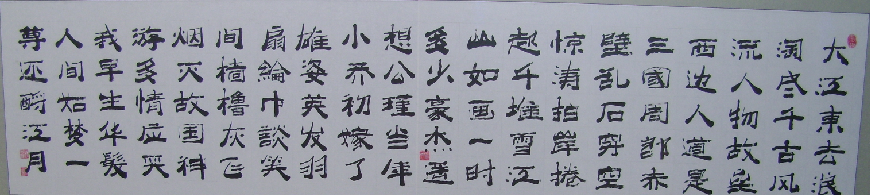 大江東去浪
淘尽千古风
流人物故垒
西边人道是
三國周郎赤
壁乱石穿空
惊涛拍岸捲
起千堆雪江
山如画一时
多少豪杰遥
想公瑾当年
小乔初嫁了
雄姿英发羽
扇綸巾談笑
间樯櫓灰飞
烟灭故国神
游多情应笑
我早生华髮
人间如梦一
尊还酹江月